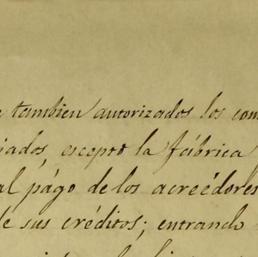 tambien autorizados los
escepto la fábrica
al págo de los acreédores
de sus créditos; entrando